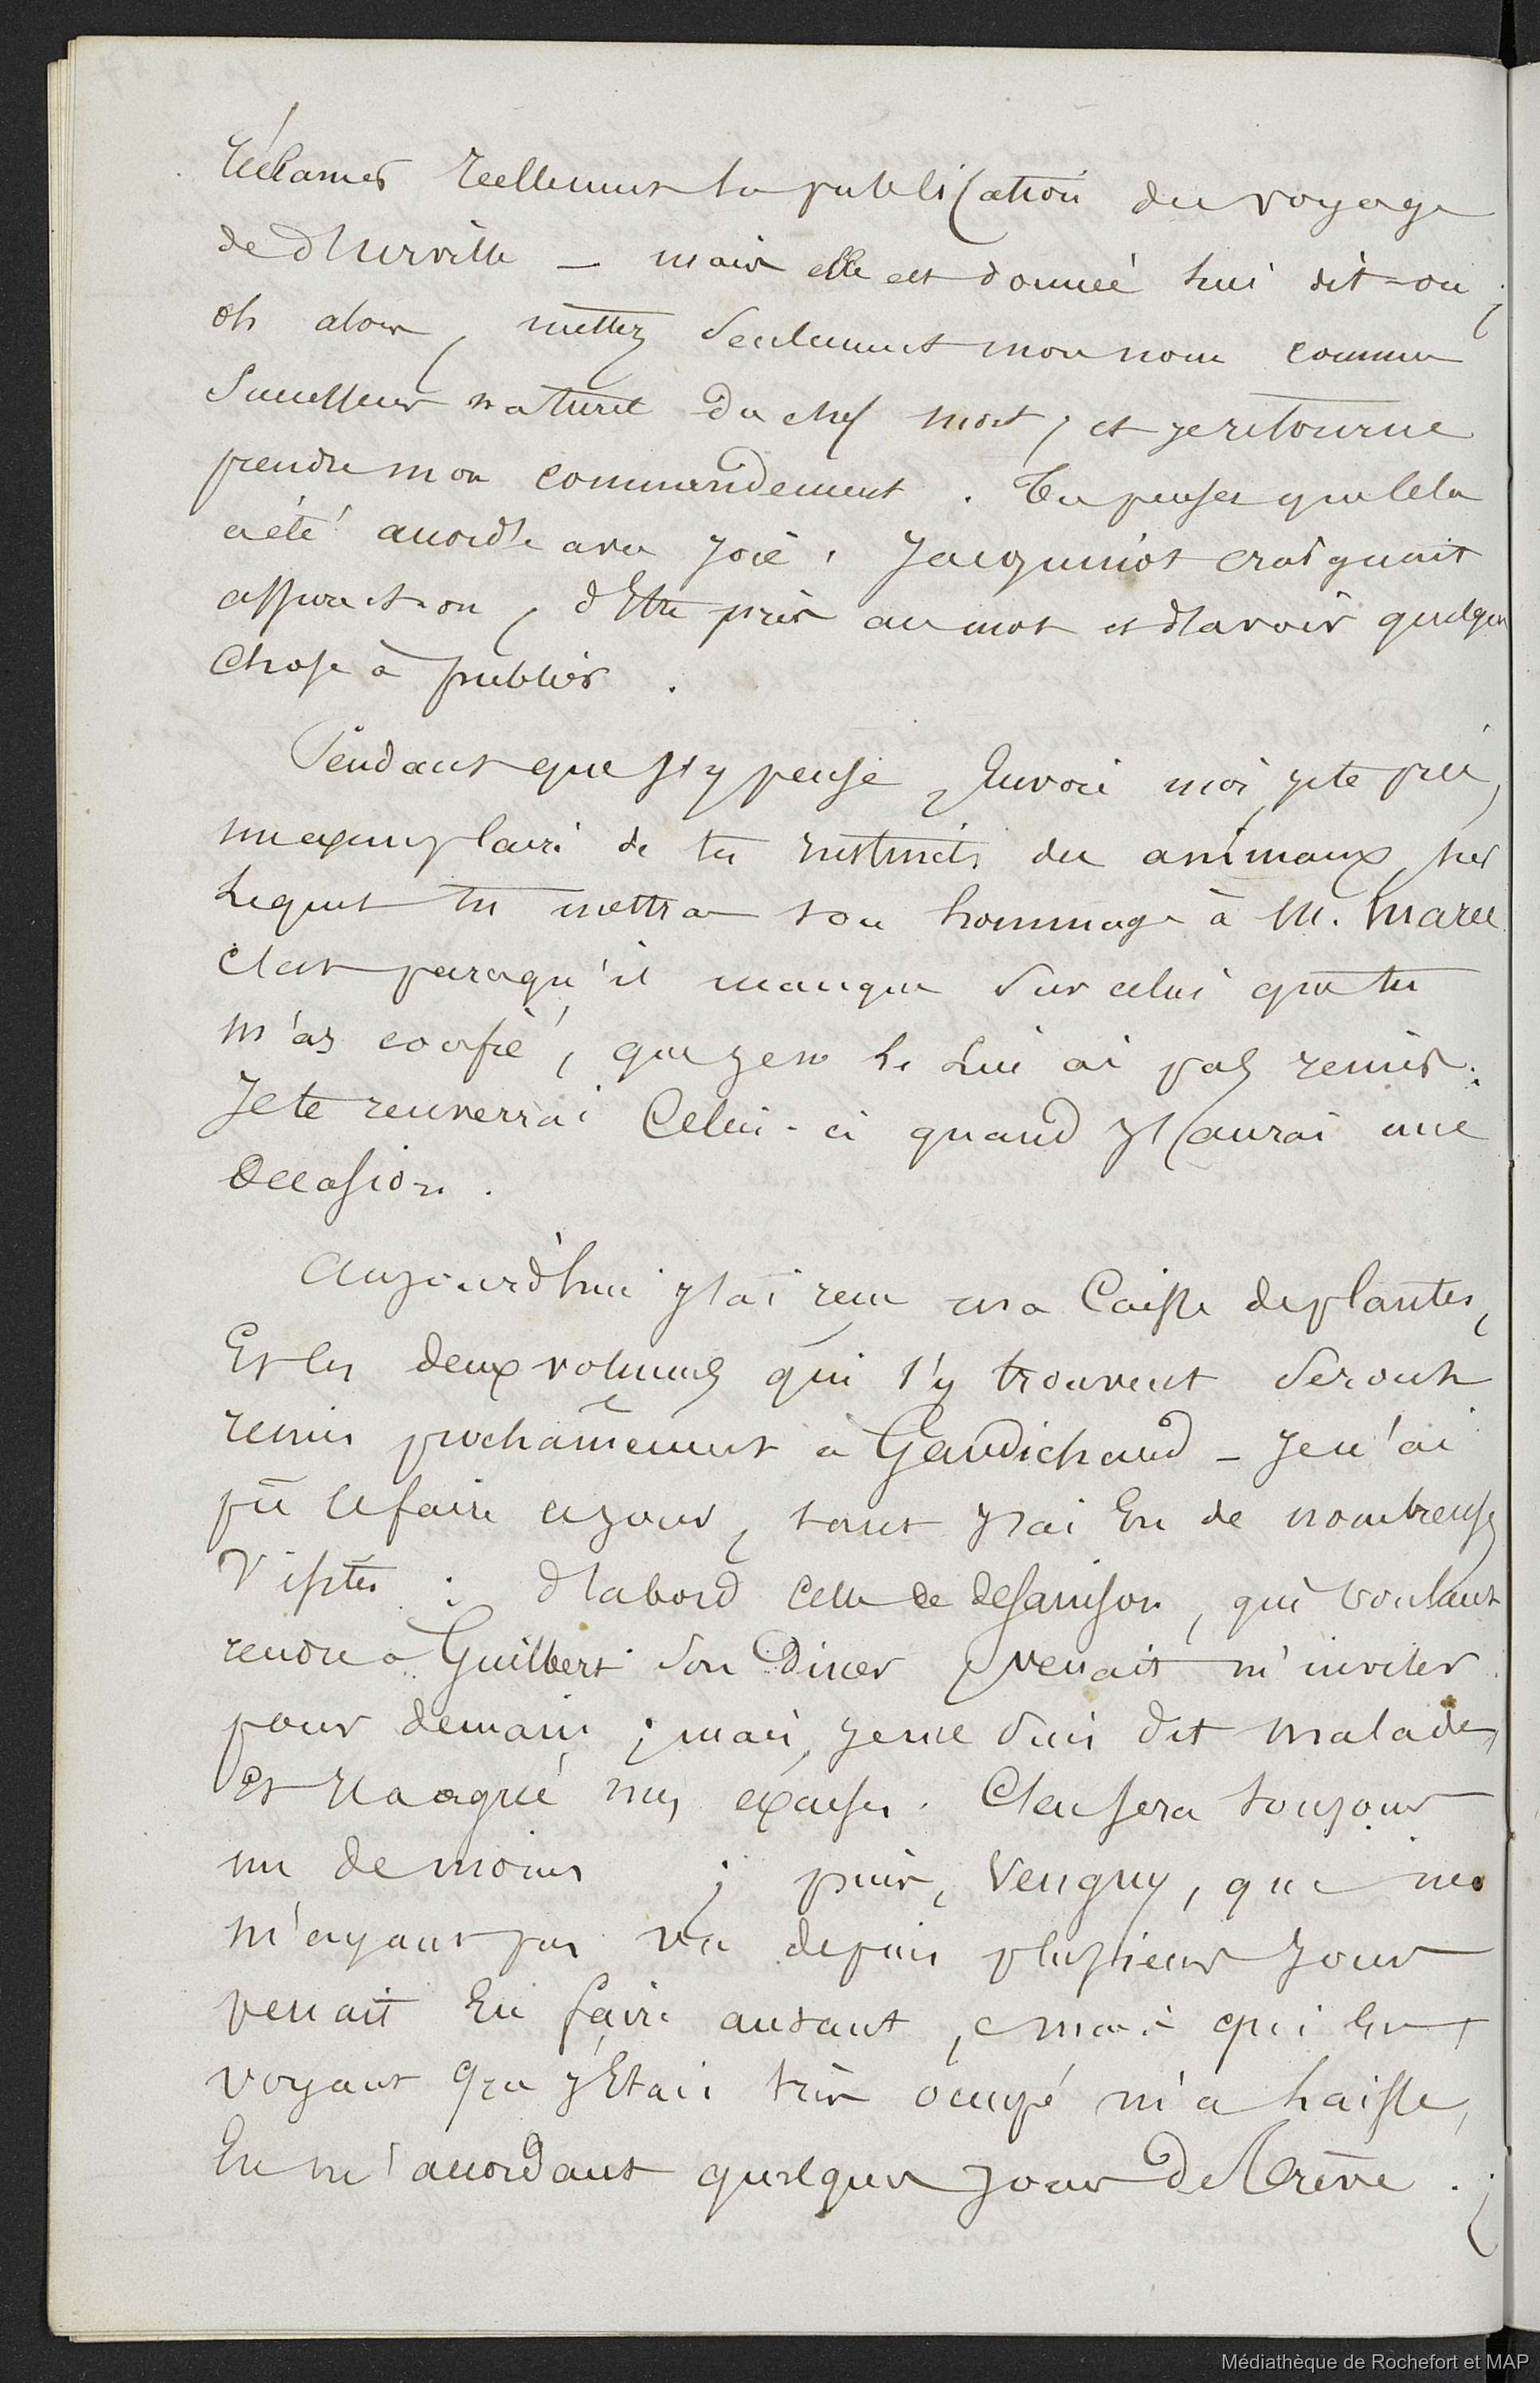 réclamer reellement la publication du voyage
de d'Urville — mais elle est donnée lui dit-on ;
oh alors, mettez seulement mon nom comme
successeur naturel du chef mort, et je retourne
prendre mon commandement. Tu penses que cela
a été accordé avec joie. Jacquinot craignait
, d'Etre pris au mot et d'avoir quelque
chose à publier.
Pendant que j'y pense, Envoie moi, je te prie,
un exemplaire de tes instincts des animaux, sur
lequel tu mettras ton hommage à M. Marec
c'est parcequ'il manque sur celui que tu
m'as confié, que je ne le lui ai pas remis.
Je te renverrai Celui-ci quand j'aurai une
occasion.
Aujourd'hui j'ai reçu ma Caisse de plantes,
Et les deux volumes qui s'y trouvent Seront
remis prochainement à Gaudichaud — Je n'ai
pû le faire ce jour, tant j'ai Eu de nombreuses
Visites : d'abord celle de , qui voulant
rendre à Guilbert son Diner, venait m'inviter
pour demain ; mais, je me suis dit malade,
Et il a agréé mes excuses. C'en sera toujours
un de moins ; puis, , que ne
m'ayant pas vu depuis plusieurs jours
venait En faire autant, mais qui En
voyant que j'Etais très occupé m'a laissé,
En m'accordant quelques jours de trève. ;
Médiathèque de Rochefort et MAP